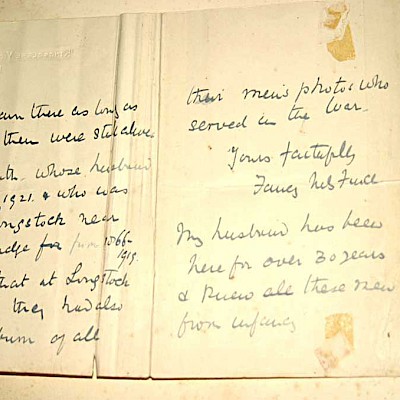 urn there as long as
them were still alive.
whose husband
1921. & who was
ongstock near
dge for from 1066-
1919.
that at Longstock
they had also
bum of all
their men's photos who
served in the War.
Yours faithfully
My husband has been
here for over 30 years
& knew all these men
from infancy